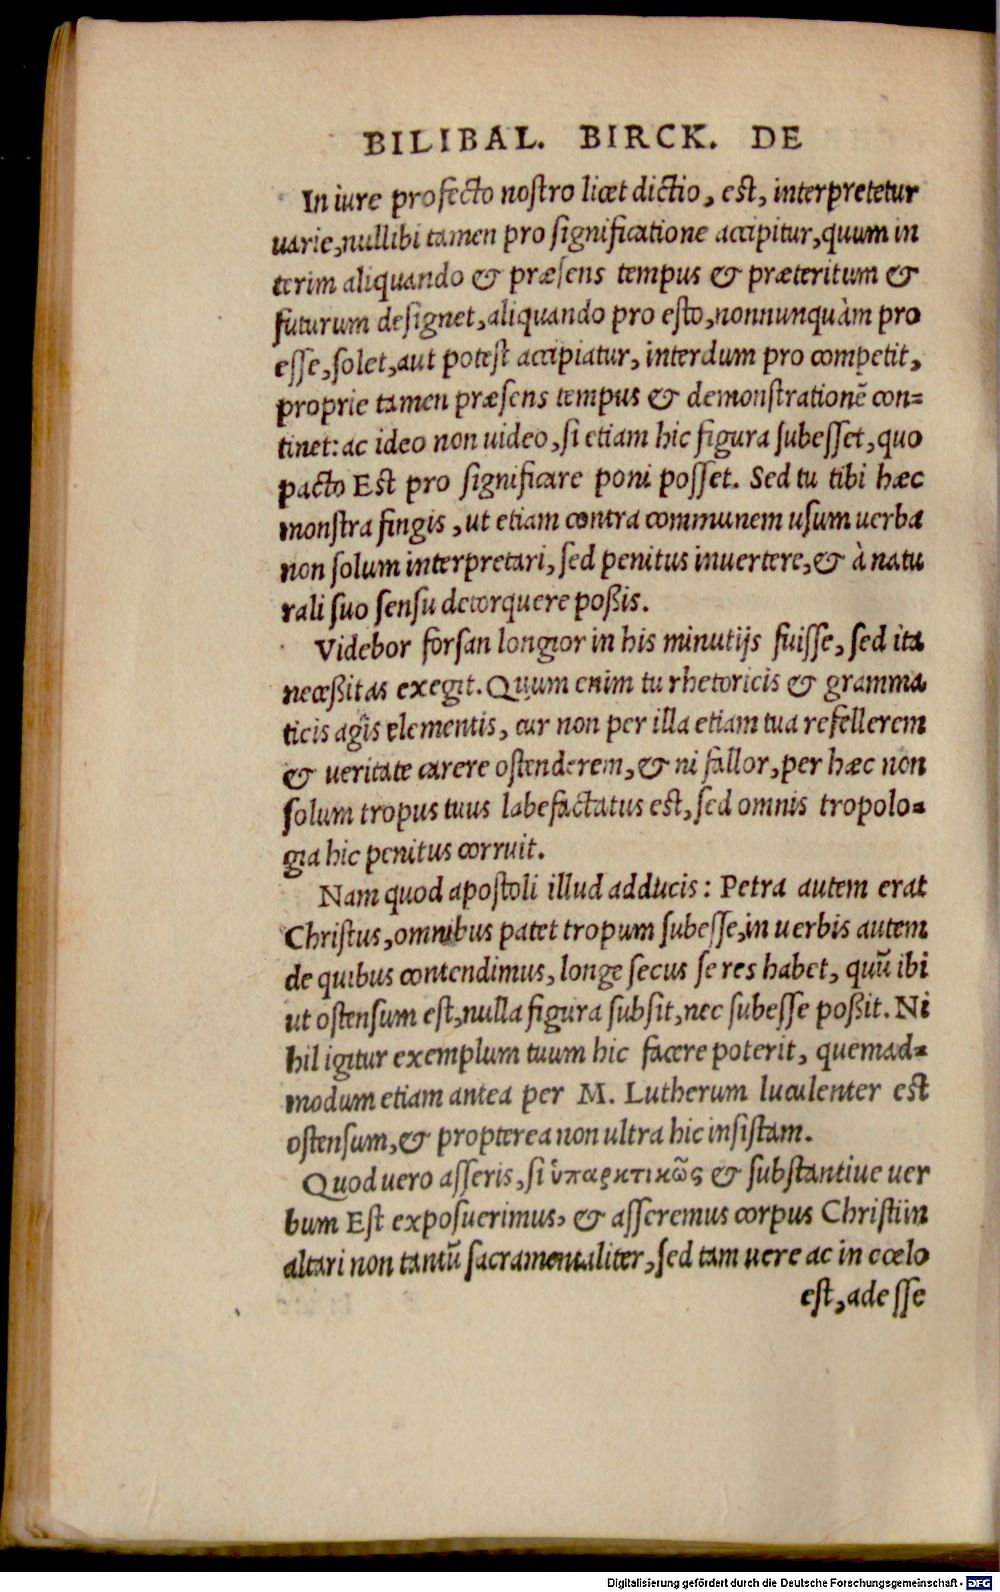 BILIBAL. BIRCK. DE
In iure profecto nostro licet dictio, est, interpretetur
uarie, nullibi tamen pro significatione accipitur, quum in
terim aliquando & præsens tempus & præteritum &
futurum designet, aliquando pro esto, nonnunquàm pro
esse, solet, aut potest accipiatur, interdum pro competit,
proprie tamen præsens tempus & demonstrationẽ con=
tinet: ac ideo non uideo, si etiam hic figura subesset, quo
pacto Est pro significare poni posset. Sed tu tibi hæc
monstra fingis, ut etiam contra communem usum uerba
non solum interpretari, sed penitus inuertere, & à natu
rali suo sensu detorquere poßis.
Videbor forsan longior in his minutijs fuisse, sed ita
neceßitas exegit. Quum enim tu rhetoricis & gramma
ticis agis elementis, cur non per illa etiam tua refellerem
& ueritate carere ostenderem, & ni fallor, per hæc non
solum tropus tuus labefactatus est, sed omnis tropolo=
gia hic penitus corruit.
Nam quod apostoli illud adducis: Petra autem erat
Christus, omnibus patet tropum subesse, in uerbis autem
de quibus contendimus, longe secus se res habet, quũ ibi
ut ostensum est, nulla figura subsit, nec subesse poßit. Ni
hil igitur exemplum tuum hic facere poterit, quemad=
modum etiam antea per M. Lutherum luculenter est
ostensum, & propterea non ultra hic insistam.
Quod uero asseris, si ὑπαρκτικῶς & substantiue uer
bum Est exposuerimus, & asseremus corpus Christi in
altari non tantũ sacramentaliter, sed tam uere ac in cœlo
est, adesse
Digitalisierung gefördert durch die Deutsche Forschungsgemeinschaft - DFG